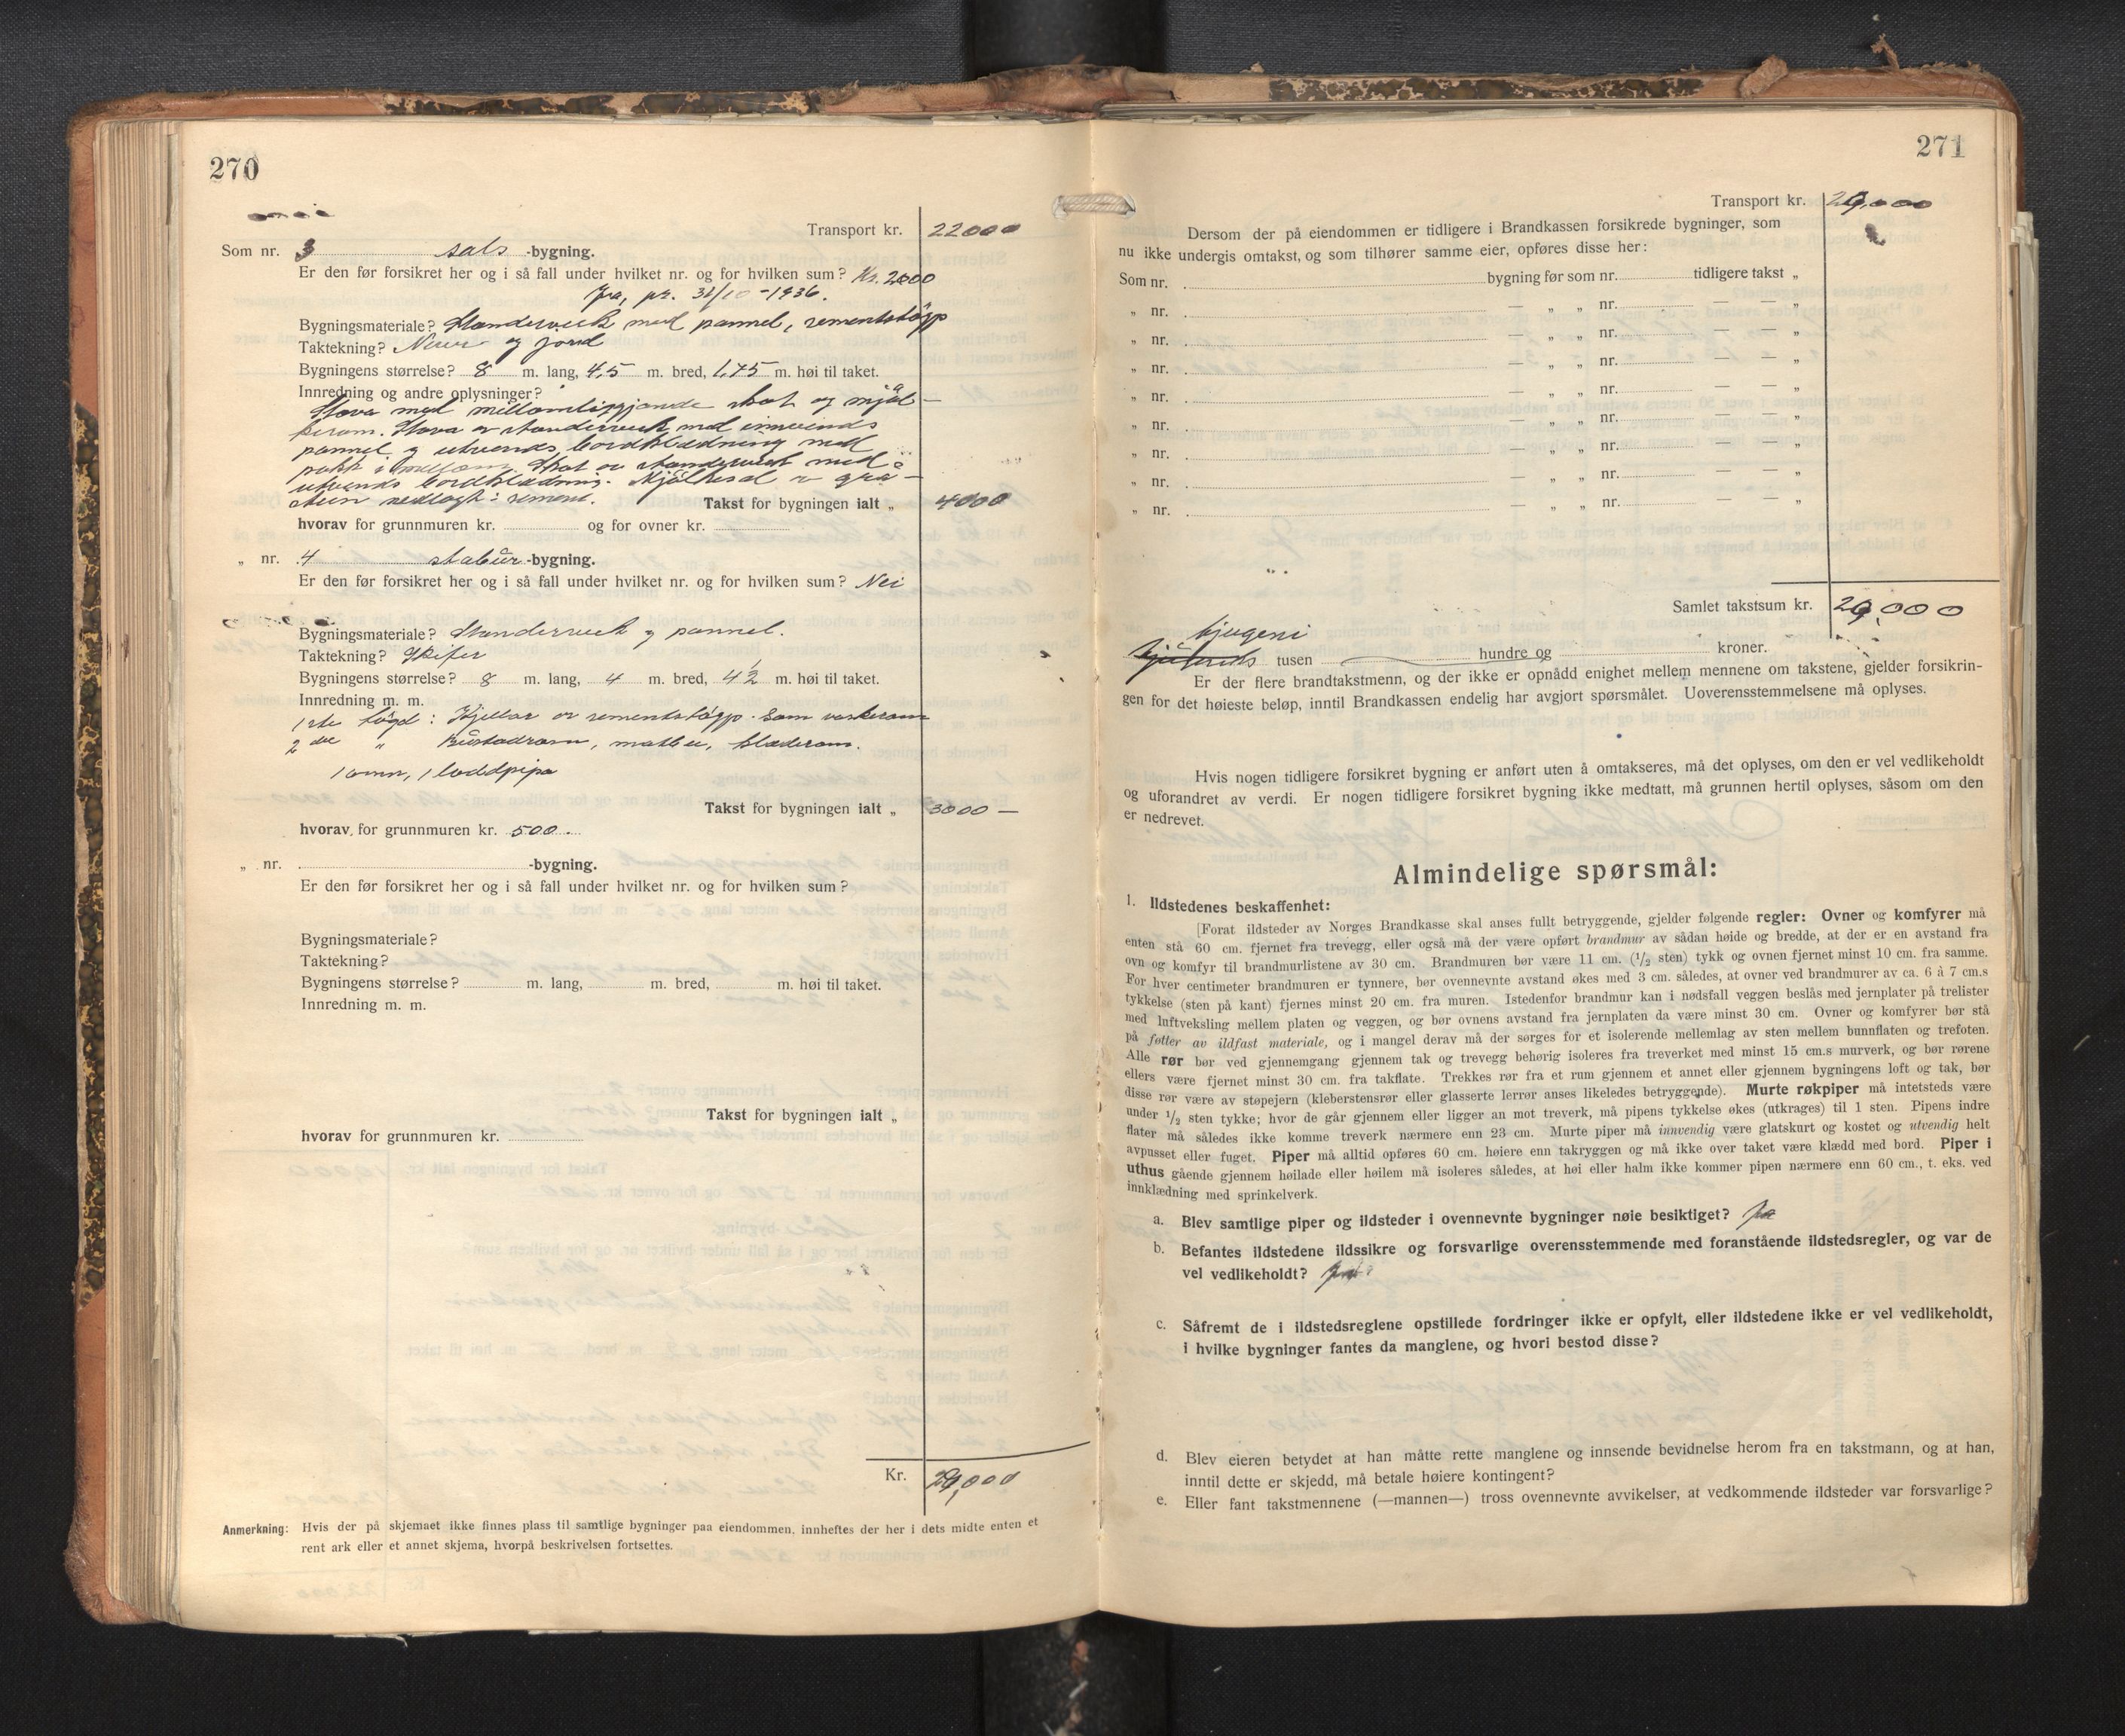 270
Transport kr. 22000
Som nr. 3 sels -bygning.
Er den før forsikret her og i så fall under hvilket nr. og for hvilken sum? Kr. 2000
Ja, pr. 31/10-1936.
Bygningsmateriale? Standerverk med pannel, sementstøypp
Taktekning? Never og jord
Bygningens størrelse? 8 m. lang, 4,5 m. bred, 1,75 m. høi til taket.
Innredning og andre oplysninger?
Stova med millomliggjande skot og mjøl-
kerom. Stova er standerverk med innvends
pannel og utvends bordklædning med
papp i millom. Skot er standerverk med
utvends bordklædning. Mjølkesel er grå-
stein nedlagt i sement. Takst for bygningen ialt „ 4000
hvorav for grunnmuren kr. og for ovner kr.
„ nr. 4 stabur -bygning.
Er den før forsikret her og i så fall under hvilket nr. og for hvilken sum? Nei
Bygningsmateriale? Standerverk og pannel.
Taktekning? Skifer
Bygningens størrelse? 8 m. lang, 4 m. bred, 4 1/2 m. høi til taket.
Innredning m. m.
1ste høgd: Kjellar er sementstøypp. Som vaskerom
2dre „ Bustadrom, matbu, klæderom.
1 omn, 1 loddpipe
Takst for bygningen ialt „ 3000 —
hvorav for grunnmuren kr. 500.
„ nr. -bygning.
Er den før forsikret her og i så fall under hvilket nr. og for hvilken sum?
Bygningsmateriale?
Taktekning?
Bygningens størrelse? m. lang, m. bred, m. høi til taket.
Innredning m. m.
Takst for bygningen ialt „
hvorav for grunnmuren kr.
Kr. 29,000
Anmerkning: Hvis der på skjemaet ikke finnes plass til samtlige bygninger paa eiendommen, innheftes der her i dets midte enten et
rent ark eller et annet skjema, hvorpå beskrivelsen fortsettes.
271
Transport kr. 29,000
Dersom der på eiendommen er tidligere i Brandkassen forsikrede bygninger, som
nu ikke undergis omtakst, og som tilhører samme eier, opføres disse her:
Som nr. bygning før som nr. tidligere takst „
„ nr. — „ „ nr. — — „
„ nr. — „ „ nr. — — „
„ nr. — „ „ nr. — — „
„ nr. — „ „ nr. — — „
„ nr. — „ „ nr. — — „
„ nr. — „ „ nr. — — „
„ nr. — „ „ nr. — — „
„ nr. — „ „ nr. — — „
Samlet takstsum kr. 29,000
tjugeni
tusen hundre og kroner.
Er der flere brandtakstmenn, og der ikke er opnådd enighet mellem mennene om takstene, gjelder forsikrin-
gen for det høieste beløp, inntil Brandkassen endelig har avgjort spørsmålet. Uoverensstemmelsene må oplyses.
Hvis nogen tidligere forsikret bygning er anført uten å omtakseres, må det oplyses, om den er vel vedlikeholdt
og uforandret av verdi. Er nogen tidligere forsikret bygning ikke medtatt, må grunnen hertil oplyses, såsom om den
er nedrevet.
Almindelige spørsmål:
1. Ildstedenes beskaffenhet:
[Forat ildsteder av Norges Brandkasse skal anses fullt betryggende, gjelder følgende regler: Ovner og komfyrer må
enten stå 60 cm. fjernet fra trevegg, eller også må der være opført brandmur av sådan høide og bredde, at der er en avstand fra
ovn og komfyr til brandmurlistene av 30 cm. Brandmuren bør være 11 cm. (1/2 sten) tykk og ovnen fjernet minst 10 cm. fra samme.
For hver centimeter brandmuren er tynnere, bør ovennevnte avstand økes med 3 cm. således, at ovner ved brandmurer av ca. 6 à 7 cm.s
tykkelse (sten på kant) fjernes minst 20 cm. fra muren. Istedenfor brandmur kan i nødsfall veggen beslås med jernplater på trelister
med luftveksling mellem platen og veggen, og bør ovnens avstand fra jernplaten da være minst 30 cm. Ovner og komfyrer bør stå
på føtter av ildfast materiale, og i mangel derav må der sørges for et isolerende mellemlag av sten mellem bunnflaten og trefoten.
Alle rør bør ved gjennemgang gjennem tak og trevegg behørig isoleres fra treverket med minst 15 cm.s murverk, og bør rørene
ellers være fjernet minst 30 cm. fra takflate. Trekkes rør fra et rum gjennem et annet eller gjennem bygningens loft og tak, bør
disse rør være av støpejern (kleberstensrør eller glasserte lerrør anses likeledes betryggende). Murte røkpiper må intetsteds være
under 1/2 sten tykke; hvor de går gjennem eller ligger an mot treverk, må pipens tykkelse økes (utkrages) til 1 sten. Pipens indre
flater må således ikke komme treverk nærmere enn 23 cm. Murte piper må innvendig være glatskurt og kostet og utvendig helt
avpusset eller fuget. Piper må alltid opføres 60 cm. høiere enn takryggen og må ikke over taket være klædd med bord. Piper i
uthus gående gjennem høilade eller høilem må isoleres således, at høi eller halm ikke kommer pipen nærmere enn 60 cm., t. eks. ved
innklædning med sprinkelverk.
a. Blev samtlige piper og ildsteder i ovennevnte bygninger nøie besiktiget? Ja
b. Befantes ildstedene ildssikre og forsvarlige overensstemmende med foranstående ildstedsregler, og var de
vel vedlikeholdt? Ja
c. Såfremt de i ildstedsreglene opstillede fordringer ikke er opfylt, eller ildstedene ikke er vel vedlikeholdt,
i hvilke bygninger fantes da manglene, og hvori bestod disse?
d. Blev eieren betydet at han måtte rette manglene og innsende bevidnelse herom fra en takstmann, og at han,
inntil dette er skjedd, må betale høiere kontingent?
e. Eller fant takstmennene (—mannen—) tross ovennevnte avvikelser, at vedkommende ildsteder var forsvarlige?